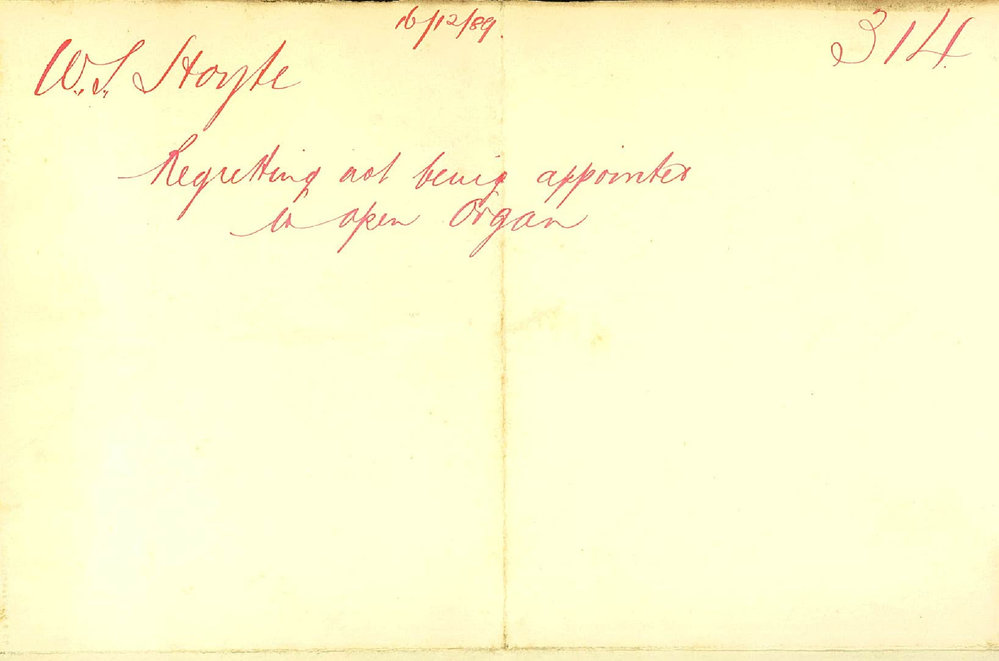 16/12/89.
314
W. S. Hoyte
Regretting not being appointed
to open Organ